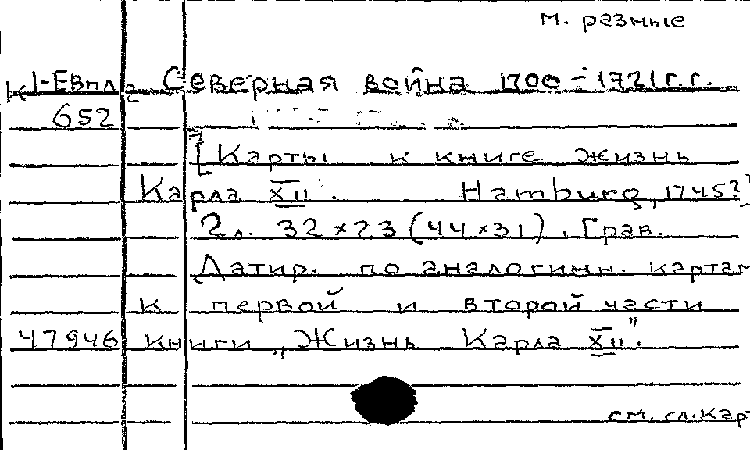 м. разные
К 1-Евпл2 Северная война 1700-1721 г.г.
652
[Карты к книге Жизнь
Карла XII. Hamburg, 1745?]
2л. 32×23 (44×31). Грав.
Датир. по аналогичн. картам
к первой и второй части
47946 книги „Жизнь Карла XII".
см. сл. кар